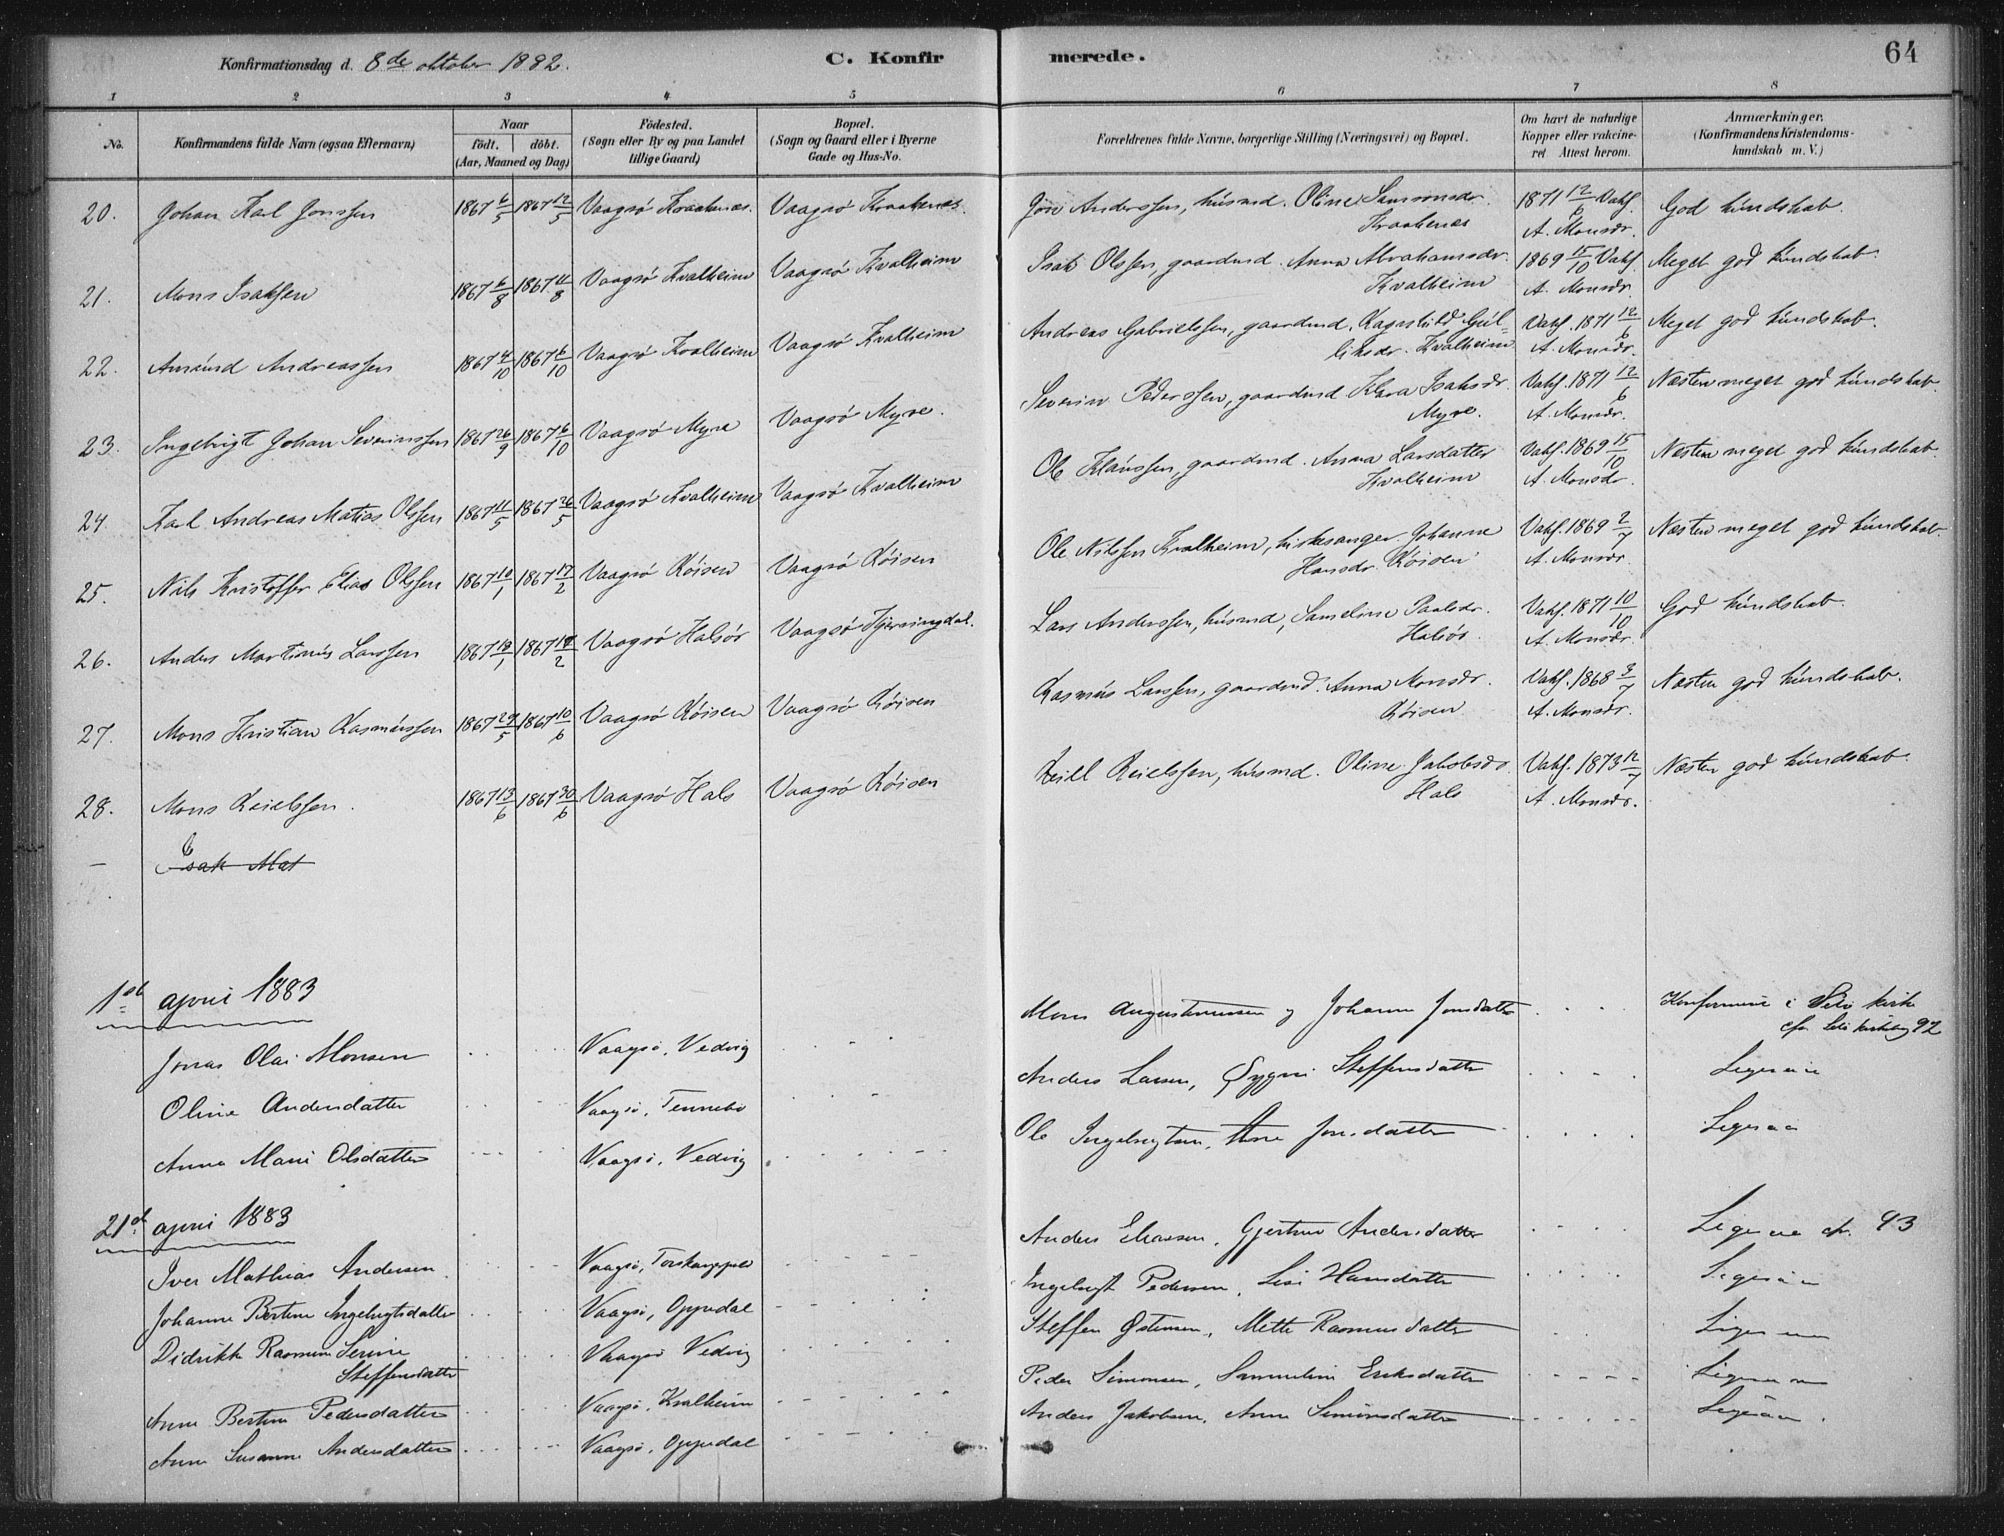 Konfirmationsdag d. 8de oktober 1882. C. Konfirmerede. 64
1 2 3 4 5 6 7 8
No. Konfirmandens fulde Navn (ogsaa Efternavn) Naar født. døbt. (Aar, Maaned og Dag) Fødested. (Sogn eller By og paa Landet tillige Gaard) Bopæl. (Sogn og Gaard eller i Byerne Gade og Hus-No. Forældrenes fulde Navne, borgerlige Stilling (Næringsvei) og Bopæl. Om havt de naturlige Kopper eller vakcineret Attest herom. Anmærkninger. (Konfirmandens Kristendomskundskab m. V.)
20. Johan Karl Jonssen 1867 6/5 1867 12/5 Vaagsö Kraakenæs. Vaagsö Kraakenæs. Jon Anderssen, husmd. Oline Samsonsdr. Kraakenæs 1871 12/6 Vakf. A. Monsdr. God kundskab.
21. Mons Isaksen 1867 6/8 1867 11/8 Vaagsö Kvalheim Vaagsö Kvalheim Isak Olssen, gaardmd. Anna Abrahamsdr. Kvalheim 1869 15/10 Vakf. A. Monsdr. Meget god kundskab.
22. Amund Andreassen 1867 4/10 1867 6/10 Vaagsö Kvalheim Vaagsö Kvalheim Andreas Gabrielssen, gaardmd. Ragnhild Gulliksdr. Kvalheim Vakf. 1871 12/6 A. Monsdr. Meget god kundskab.
23. Ingebrigt Johan Severinssen 1867 26/9 1867 6/10 Vaagsö Myre Vaagsö Myre. Severin Pederssen, gaardmd Klara Isaksdr. Myre. Vakf. 1871 12/6 A. Monsdr. Næsten meget god kundskab.
24. Karl Andreas Matias Olssen 1867 11/5 1867 26/5 Vaagsö Kvalheim Vaagsö Kvalheim Ole Klaussen, gaardmd. Anna Larsdatter Kvalheim Vakf. 1869 15/10 A. Monsdr. Næsten meget god kundskab.
25. Nils Kristoffer Elias Olssen 1867 10/1 1867 17/2 Vaagsö Röisen Vaagsö Röisen Ole Nilssen Kvalheim, kirkesanger. Johanne Hansdr. Röisen Vakf. 1869 2/7 A. Monsdr. Næsten meget god kundskab.
26. Anders Martinus Larssen 1867 19/1 1867 17/2 Vaagsö Halsör Vaagsö Hjerringdal. Lars Anderssen, husmd, Sameline Paalsdr. Halsör. Vakf. 1871 10/10 A. Monsdr. God kundskab.
27. Mons Kristian Rasmussen 1867 24/5 1867 10/6 Vaagsö Röisen Vaagsö Röisen Rasmus Larssen, gaardmd. Anna Monsdr. Röisen Vakf. 1868 3/7 A. Monsdr. Næsten god kundskab.
28. Mons Reielssen. 1867 13/6 1867 30/6 Vaagsö Hals Vaagsö Röisen Reiel Reielssen, husmd. Oline Jakobsdr. Hals Vakf. 1873 12/7 A. Monsdr. Næsten god kundskab.
— Isak Mat
1ste april 1883
Jonas Olai Monsen Vaagsö, Vedvig Mons Augustinussen og Johanne Jonsdatter Konfirmeret i Selö kirke cfr. Selö kirkebog 92
Oline Andersdatter Vaagsö, Tennebö Anders Larsen, Steffensdatter Ligesaa
Anna Marie Olsdatter Vaagsö, Vedvig Ole Ingebrigtsen, Ane Jonsdatter Ligesaa
21de april 1883
Iver Mathias Andersen Vaagsö, Torskangerpold Anders Eliassen, Gjertrud Andersdatter Ligesaa cfr. 93
Johanne Bertine Ingebrigtsdatter Vaagsö, Oppedal Ingebrigt Pedersen, Lisi Hansdatter Ligesaa
Didrikke Rasmine Serine Steffensdatter Vaagsö Vedvig Steffen Østensen, Mette Rasmusdatter Ligesaa
Anne Bertine Pedersdatter Vaagsö, Kvalheim Peder Simonsen, Sammeline Eriksdatter Ligesaa
Anne Susanne Andersdatter Vaagsö, Oppedal Anders Jakobsen, Anne Simonsdatter Ligesaa